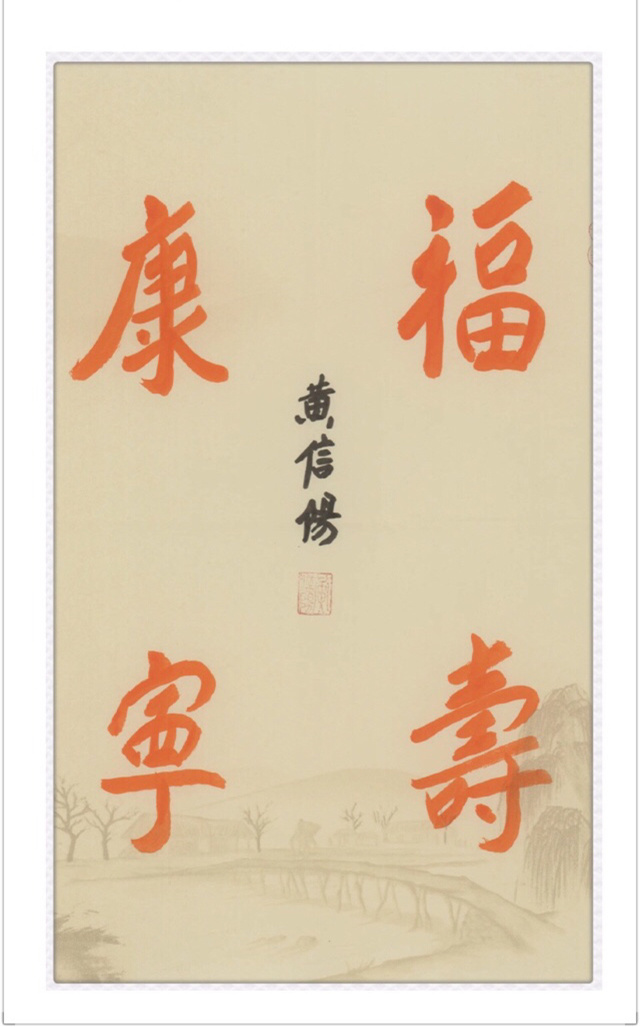 福壽
康寧
黄信陽